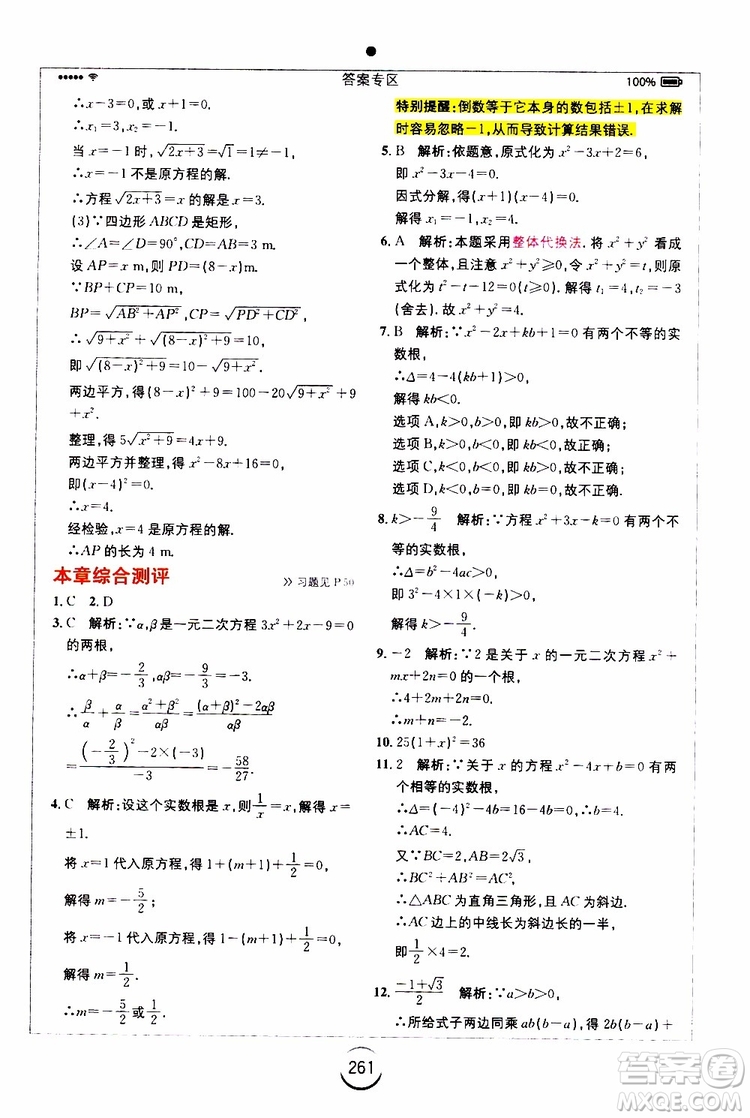 答案专区
100%
∴x-3=0,或x+1=0.
∴x₁=3,x₂=-1.
当x=-1时,√(2x+3)=√1=1≠-1,
∴x=-1不是原方程的解.
∴方程√(2x+3)=x的解是x=3.
(3)∵四边形ABCD是矩形,
∴∠A=∠D=90°,CD=AB=3 m.
设AP=x m,则PD=(8-x) m.
∵BP+CP=10 m,
BP=√(AB²+AP²),CP=√(PD²+CD²),
∴√(9+x²)+√((8-x)²+9)=10.
即√((8-x)²+9)=10-√(9+x²).
两边平方,得(8-x)²+9=100-20√(x²+9)+9
+x².
整理,得5√(x²+9)=4x+9.
两边平方并整理,得x²-8x+16=0,
即(x-4)²=0.
∴x=4.
经检验,x=4是原方程的解.
∴AP的长为4 m.
本章综合测评 >> 习题见P50
1. C 2. D
3. C 解析:∵α,β是一元二次方程3x²+2x-9=0
的两根,
∴α+β=-2/3,αβ=-9/3=-3.
∴β/α+α/β=(α²+β²)/αβ=((α+β)²-2αβ)/αβ
=((-2/3)²-2×(-3))/-3=-58/27.
4. C 解析:设这个实数根是x,则1/x=x,解得x=
±1.
将x=1代入原方程,得1+(m+1)+1/2=0,
解得m=-5/2;
将x=-1代入原方程,得1-(m+1)+1/2=0,
解得m=1/2.
∴m=-5/2或1/2.
特别提醒:倒数等于它本身的数包括±1,在求解
时容易忽略-1,从而导致计算结果错误.
5. B 解析:依题意,原式化为x²-3x+2=6,
即x²-3x-4=0.
因式分解,得(x+1)(x-4)=0.
解得x₁=-1,x₂=4.
6. A 解析:本题采用整体代换法.将x²+y²看成
一个整体,且x²+y²⩾0,令x²+y²=t,则原
式化为t²-t-12=0(t⩾0).解得t₁=4,t₂=-3
(舍去).故x²+y²=4.
7. B 解析:∵x²-2x+kb+1=0有两个不等的实
数根,
∴Δ=4-4(kb+1)>0,
解得kb<0.
选项A,k>0,b>0,即kb>0,故不正确;
选项B,k>0,b<0,即kb<0,故正确;
选项C,k<0,b<0,即kb>0,故不正确;
选项D,k<0,b=0,即kb=0,故不正确.
8. k>-9/4 解析:∵方程x²+3x-k=0有两个不
等的实数根,
∴Δ=b²-4ac>0,
即3²-4×1×(-k)>0,
解得k>-9/4.
9. -2 解析:∵2是关于x的一元二次方程x²+
mx+2n=0的一个根,
∴4+2m+2n=0.
∴m+n=-2.
10. 25(1+x)²=36
11. 2 解析:∵关于x的方程x²-4x+b=0有两
个相等的实数根,
∴Δ=(-4)²-4b=16-4b=0,
∴AC=4.
又∵BC=2,AB=2√3,
∴BC²+AB²=AC²,
∴△ABC为直角三角形,AC为斜边.
∴AC边上的中线长为斜边的一半,
即1/2×4=2.
12. (-1+√3)/2 解析:∵a>b>0,
∴所给式子两边同乘ab(b-a),得2b(b-a)+
261
答案圈
MXQE.COM